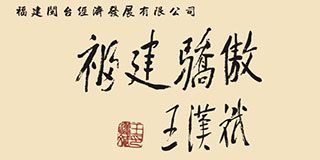 福建閩台經濟發展有限公司
福建驕傲
王漢斌